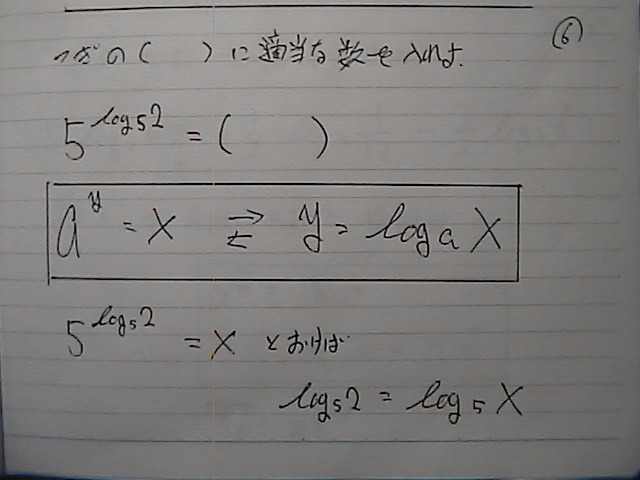 つぎの(　　)に適当な数を入れよ. ⑥
5^{log₅2} = (　　)
a^y = x ⇄ y = logₐ x
5^{log₅2} = x とおけば
log₅2 = log₅ x